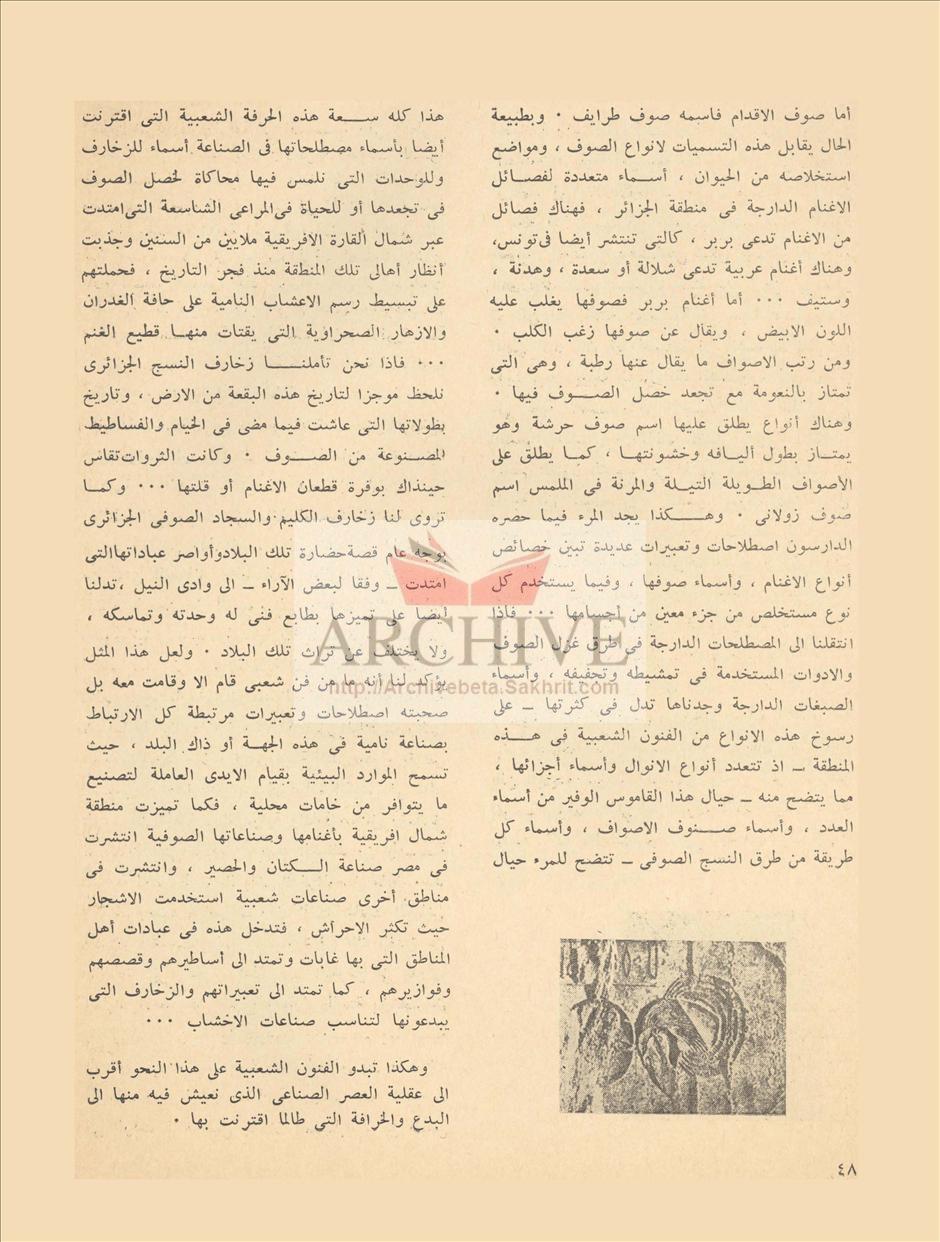 أما صوف الاقدام فاسمه صوف طرايف ٠ وبطبيعة
الحال يقابل هذه التسميات لانواع الصوف ، ومواضع
استخلاصه من الحيوان ، أسـماء متعددة لفصـائل
الاغنام الدارجة فى منطقة الجزائر ، فهناك فصائل
من الاغنام تدعى بربر ، كالتى تنتشر أيضا فى تونس،
وهناك أغنام عربية تدعى شلالة أو سعدة ، وهدنة ،
وستيف ٠٠٠ أما أغنام بربر فصوفها يغلب عليه
اللون الابيض ، ويقال عن صوفها زغب الكلب ٠
ومن رتب الاصواف ما يقال عنها رطبة ، وهى التى
تمتاز بالنعومة مع تجعد خصل الصـوف فيها ٠
وهناك أنواع يطلق عليها اسم صوف حرشة وهو
يمتـاز بطول أليـافه وخشونتهـا ، كمـا يطلق على
الأصواف الطـويلة التيـلة والمرنة فى الملمس اسم
صوف زولانى ٠ وهـكذا يجد المرء فيما حصره
الدارسون اصطلاحات وتعبيرات عديدة تبين خصائص
أنواع الاغنام ، وأسماء صوفها ، وفيما يستخدم كل
نوع مستخلص من جزء معين من أجسامها ٠٠٠ فاذا
انتقلنا الى المصطلحات الدارجة فى طرق غزل الصوف
والادوات المستخدمة فى تمشيطه وتجفيفه ، وأسماء
الصبغات الدارجة وجدناها تدل فى كثرتها ــ على
رسوخ هذه الانواع من الفنون الشعبية فى هـذه
المنطقة ــ اذ تتعدد أنواع الانوال وأسماء أجزائها ،
مما يتضح منه ــ حيال هذا القاموس الوفير من أسماء
العدد ، وأسماء صـنوف الاصواف ، وأسماء كل
طريقة من طرق النسج الصوفى ــ تتضح للمرء حيال
هذا كله سـعة هذه الحرفة الشعبية التى اقترنت
أيضا بأسماء مصطلحاتها فى الصناعة أسماء للزخارف
وللوحدات التى نلمس فيها محاكاة لخصل الصوف
فى تجعدها أو للحياة فى المراعى الشاسعة التى امتدت
عبر شمال القارة الافريقية ملايين من السنين وجذبت
أنظار أهالى تلك المنطقة منذ فجر التاريخ ، فحملتهم
على تبسيط رسم الاعشاب النامية على حافة الغدران
والازهار الصحراوية التى يقتات منهـا قطيع الغنم
٠٠٠ فاذا نحن تأملنـا زخارف النسج الجزائرى
نلحظ موجزا لتاريخ هذه البقعة من الارض ، وتاريخ
بطولاتها التى عاشت فيما مضى فى الخيام والفساطيط
المصـنوعة من الصـوف ٠ وكانت الثروات تقاس
حينذاك بوفرة قطعان الاغنام أو قلتها ٠٠٠ وكمـا
تروى لنا زخارف الكليم والسجاد الصوفى الجزائرى
بوجه عام قصة حضارة تلك البلاد وأواصر عباداتها التى
امتدت ــ وفقا لبعض الآراء ــ الى وادى النيل ، تدلنا
أيضا على تميزها بطابع فنى له وحدته وتماسكه ،
ولا يختلف عن تراث تلك البلاد ٠ ولعل هذا المثل
يؤكد لنا أنه ما من فن شعبى قام الا وقامت معه بل
صحبته اصطلاحات وتعبيرات مرتبطة كل الارتباط
بصناعة نامية فى هذه الجهة أو ذاك البلد ، حيث
تسمح الموارد البيئية بقيام الايدى العاملة لتصنيع
ما يتوافر من خامات محلية ، فكما تميزت منطقة
شمال افريقية بأغنامها وصناعاتها الصوفية انتشرت
فى مصر صناعة الـكتان والحصير ، وانتشرت فى
مناطق أخرى صناعات شعبية استخدمت الاشجار
حيث تكثر الاحراش ، فتدخل هذه فى عبادات أهل
المناطق التى بها غابات وتمتد الى أساطيرهم وقصصهم
وفوازيرهم ، كما تمتد الى تعبيراتهم والزخارف التى
يبدعونها لتناسب صناعات الاخشاب ٠٠٠
وهكذا تبدو الفنون الشعبية على هذا النحو أقرب
الى عقلية العصر الصناعى الذى نعيش فيه منها الى
البدع والخرافة التى طالما اقترنت بها ٠
٤٨
ARCHIVE
http://Archivebeta.Sakhrit.com